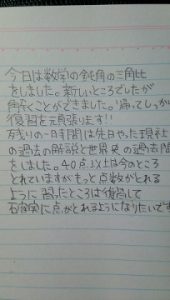 今日は数学の鈍角の三角比
をしました。新しいところでしたが
解くことができました。帰ってしっかり
復習を頑張ります!!
残りの一時間は先日やった現社
の過去の解説と世界史の過去問
をしました。40点以上は今のところ
とれていますがもっと点数がとれる
ように習ったところは復習して
確実に点がとれるようになりたいです